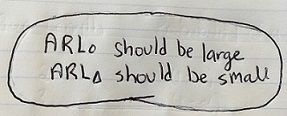 ARL₀ should be large
ARL∆ should be small